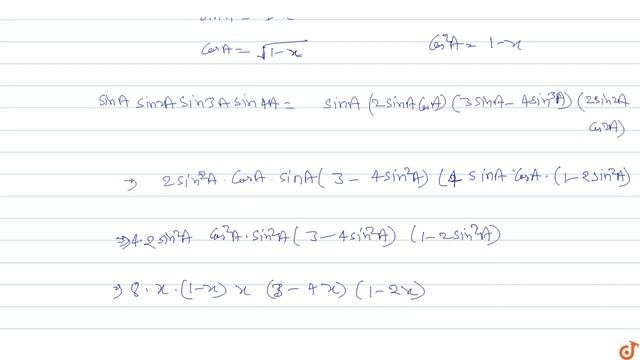 cosA = √1-x cos²A = 1-x
sinA sin2A sin3A sin4A = sinA (2sinA cosA) (3sinA - 4sin³A) (2sin2A
cos2A)
→ 2sin²A · cosA · sinA (3 - 4sin²A) (4 sinA cosA · (1-2sin²A)
⇒ 4·2sin²A cos²A · sin²A (3-4sin²A) (1-2sin²A)
⇒ 8 · x · (1-x) x (3-4x) (1-2x)